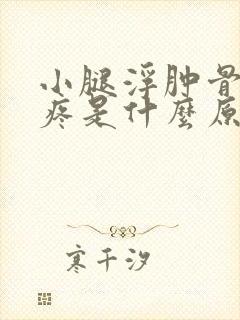 小腿浮肿骨
疼是什麼原
寒千汐